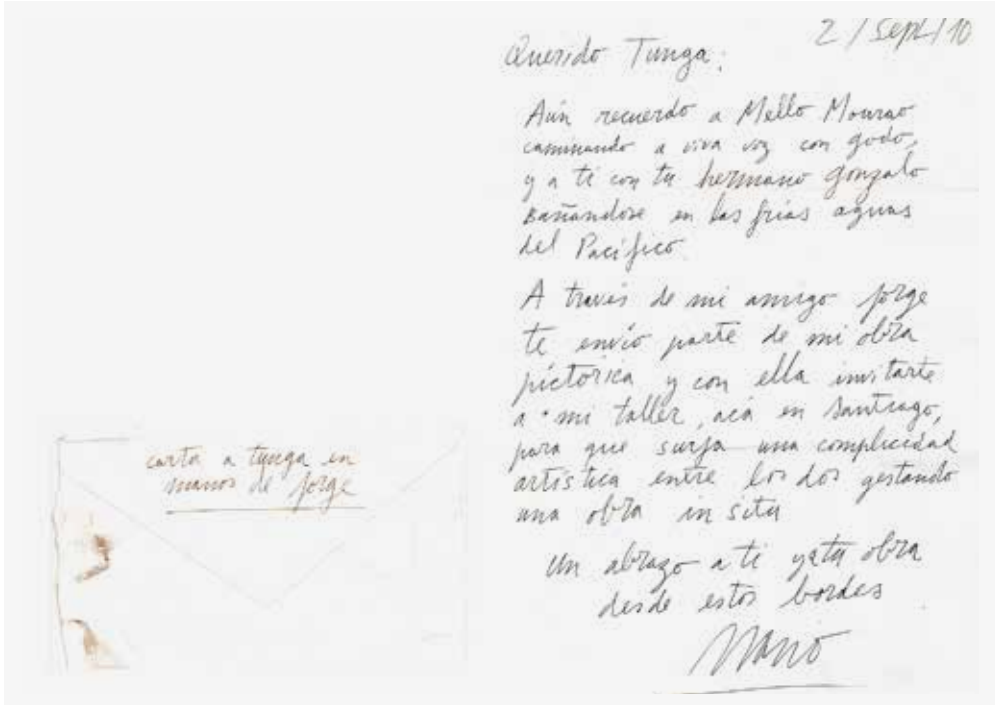 2/Sept/10
Querido Tunga:
Aún recuerdo a Mello Mourao
caminando a viva voz con godo,
y a ti con tu hermano gonzalo
Bañandose en las frias aguas
del Pacífico
A través de mi amigo Jorge
te envío parte de mi obra
píctorica y con ella invitarte
a mi taller, acá en Santiago,
para que surja una complicidad
artística entre los dos gestando
una obra in situ
un abrazo a ti y a tu obra
desde estos bordes
carta a tunga en
manos de Jorge